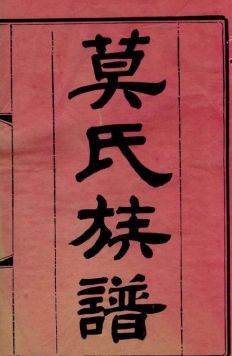 莫氏族譜